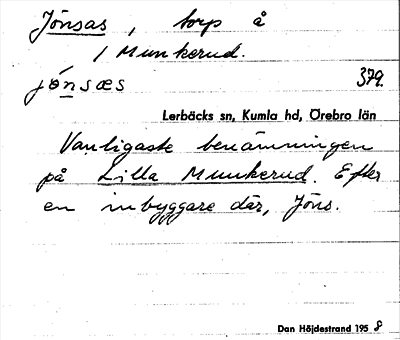 Jönsas, torp å
/ Munkerud.
jónsæs 379.
Lerbäcks sn, Kumla hd, Örebro län
Vanligaste benämningen
på Lilla Munkerud. Efter
en inbyggare där, Jöns.
Dan Höjdestrand 1958